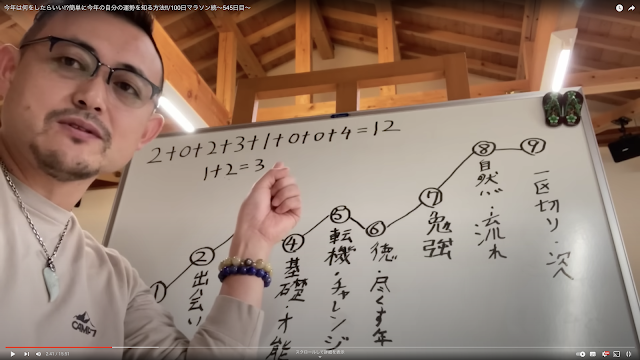 今年は何をしたらいい!?簡単に今年の自分の運勢を知る方法!!/100日マラソン続〜545日目〜
2+0+2+3+1+0+0+4=12
1+2=3
①
② 出会い
④ 基礎・才能
⑤ 転機・チャレンジ
⑥ 徳・尽くす年
⑦ 勉強
⑧ 自然・流れ
⑨ 一区切り・次へ
2:41 / 15:51
スクロールして詳細を表示